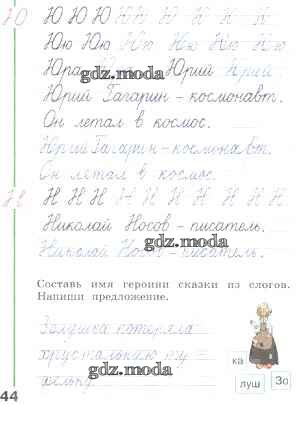 Ю Ю Ю Ю Ю Ю Ю Ю Ю Ю
Юю Юю Юю Юю Юю Юю
Юра Юра Юрий Юрий
gdz.moda
Юрий Гагарин – космонавт.
Он летал в космос.
gdz.moda
Юрий Гагарин – космонавт.
Он летал в космос.
Н Н Н Н Н Н Н Н Н Н
Николай Носов – писатель.
gdz.moda
Николай Носов – писатель.
Составь имя героини сказки из слогов.
Напиши предложение.
Золушка потеряла
gdz.moda
хрустальную ту
gdz.moda
фельку.
ка
луш
Зо
44